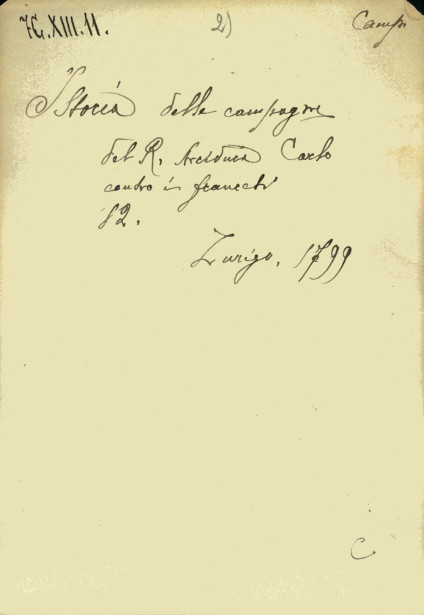 7C.XIII.11.
2)
Camp
Istoria delle campagne
del R. Arciduca Carlo
contro i francesi
82.
Zurigo. 1799
C